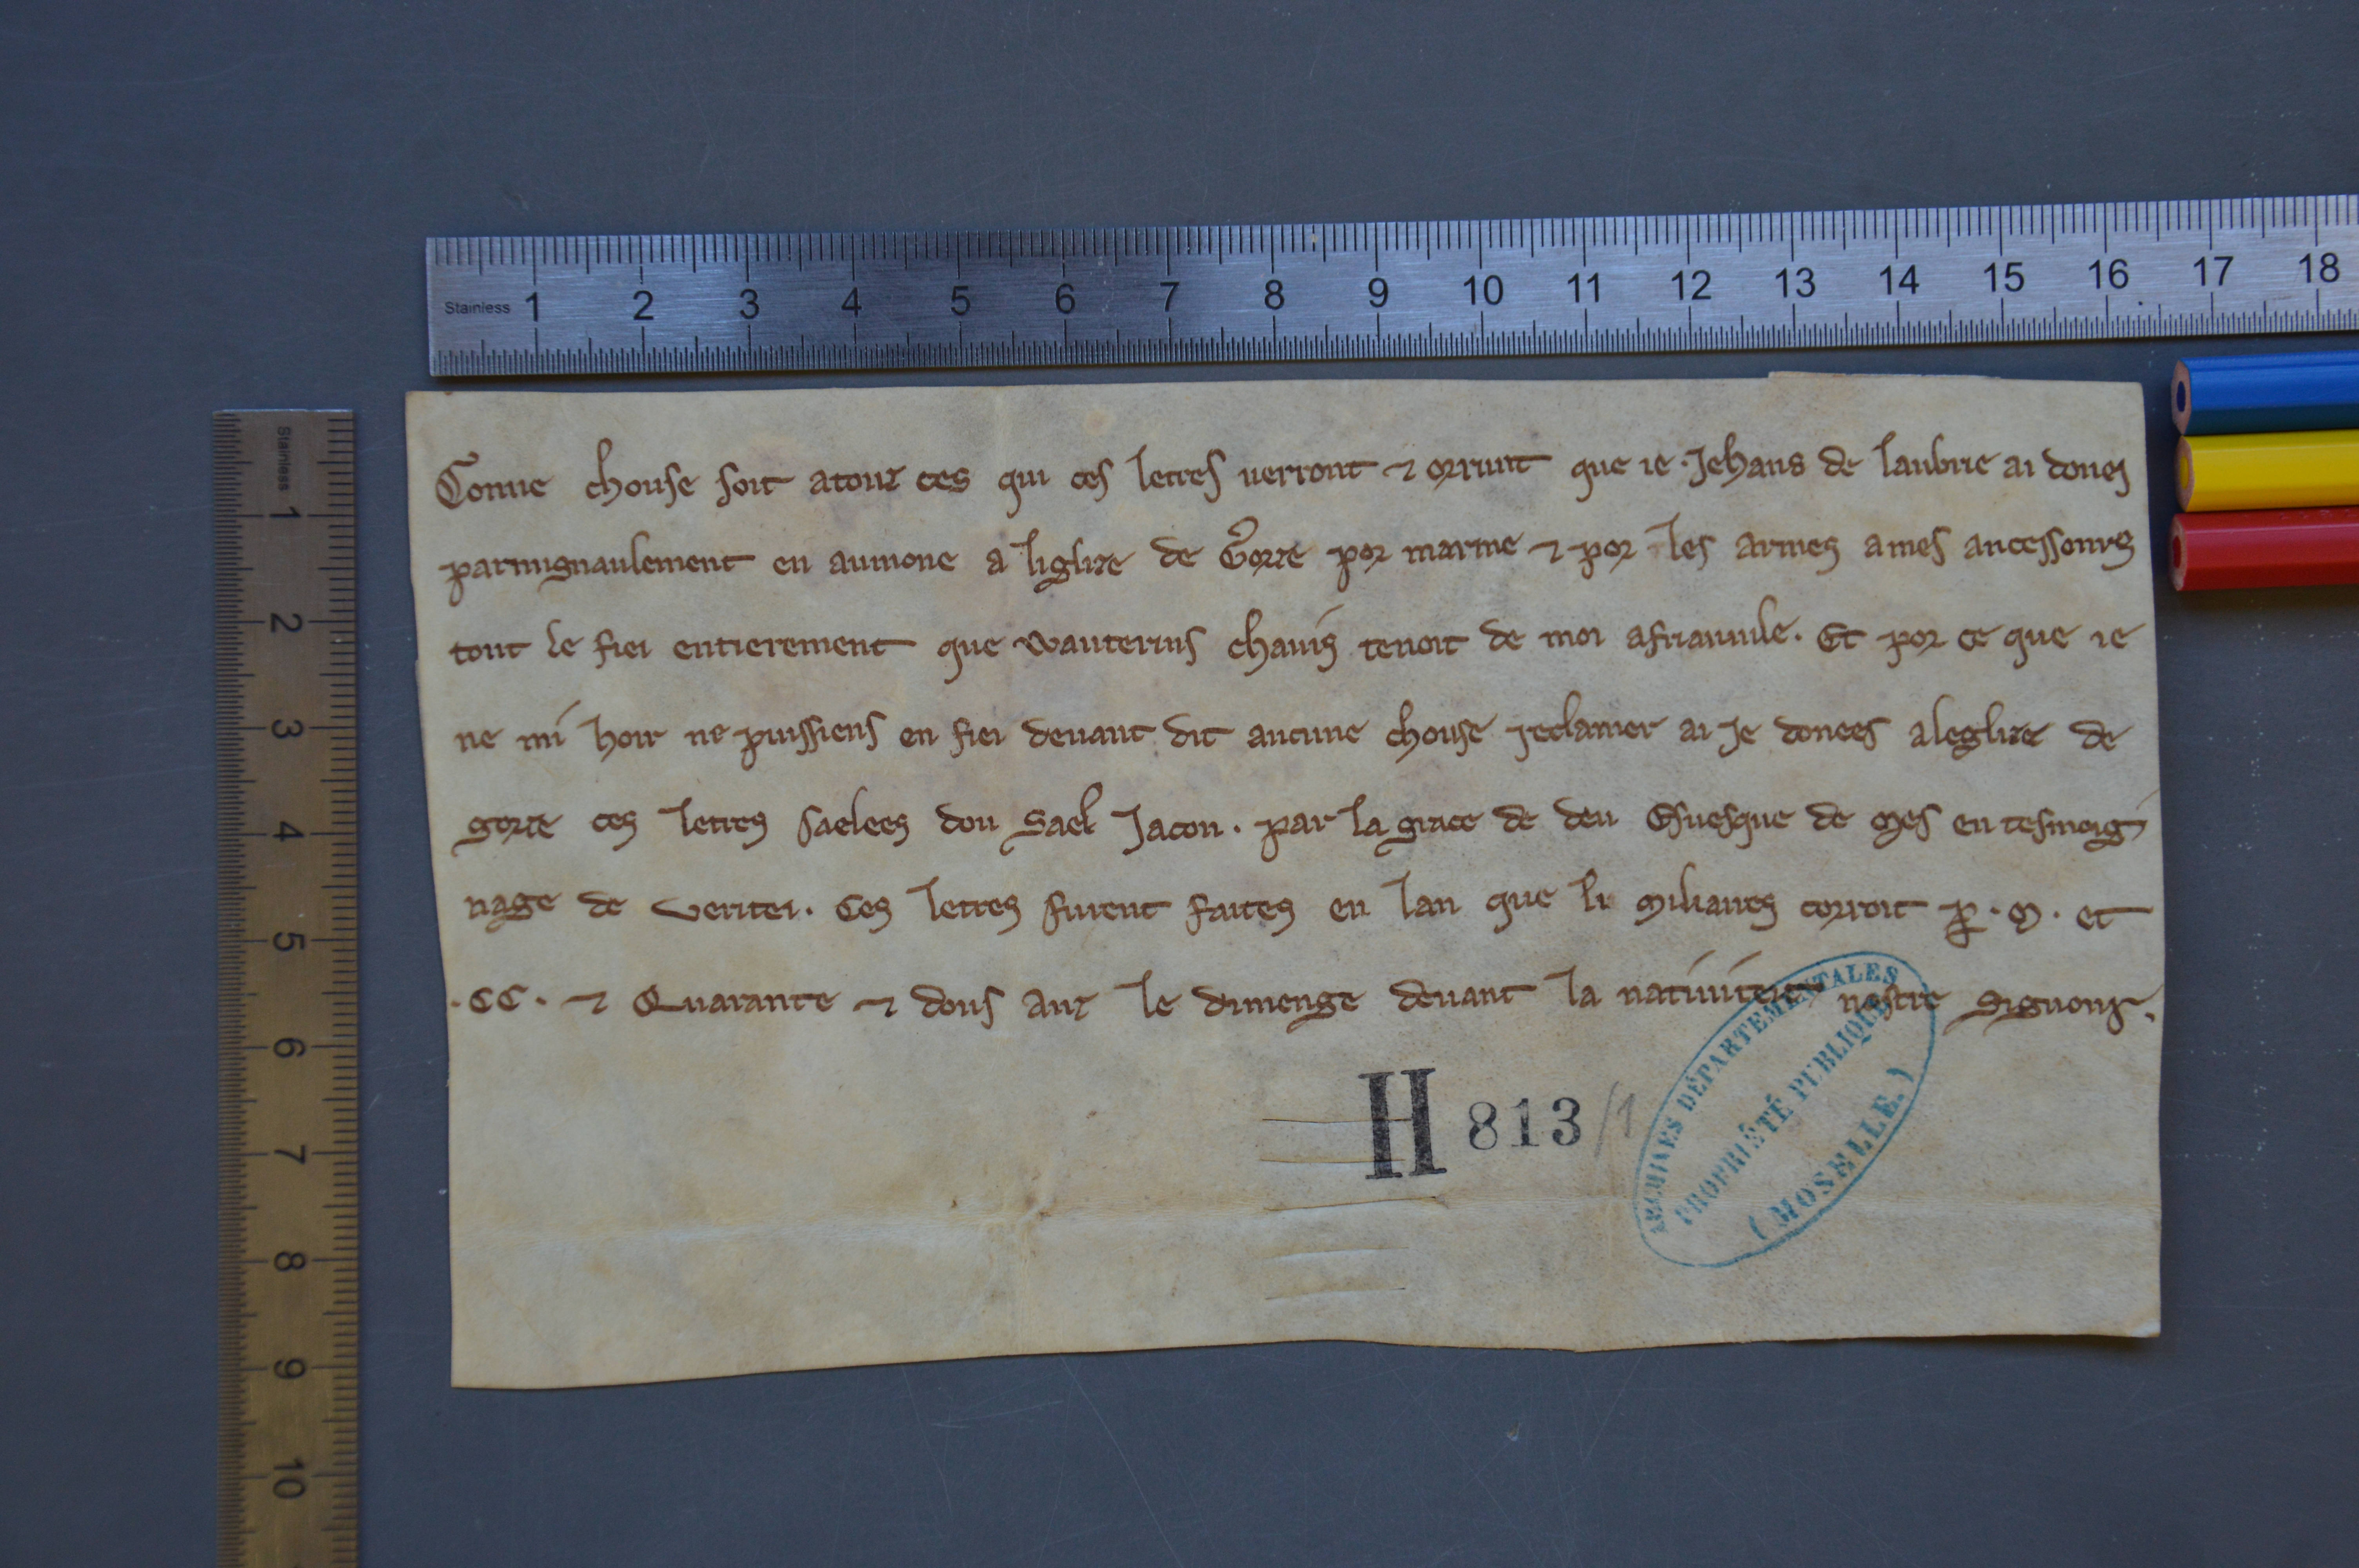 Stainless 1 2 3 4 5 6 7 8 9 10 11 12 13 14 15 16 17 18
Stainless 1 2 3 4 5 6 7 8 9 10
Conue chouse soit atouz ces qui ces lettres uerront ⁊ orrunt que ie. Jehans de laubrie ai donei
parmignaulement en aumone a liglize de Gorze por marme ⁊ por les armes a mes ancessours
tout le fiei entierement que Wauterins chauis tenoit de moi afriauuile. Et por ce que ie
ne mi hoir ne puissiens en fiei deuant dit aucune chouse reclamer ai Je donees aleglize de
gorze ces lettres saelees dou sael Jacon. par la grace de deu Esuesque de Mes en tesmoig
nage de veritei. Ces lettres furent faites en lan que li Miliaires corroit ꝑ. M. et
.CC. ⁊ Quarante ⁊ dous anz le dimenge deuant la natiuitei nostre Signour.
H 813/1
ARCHIVES DÉPARTEMENTALES
PROPRIÉTÉ PUBLIQUE
(MOSELLE.)